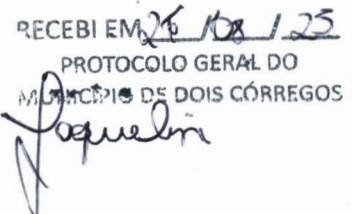 RECEBI EM 25 / 08 / 25
PROTOCOLO GERAL DO
MUNICÍPIO DE DOIS CÓRREGOS
Jaquelin